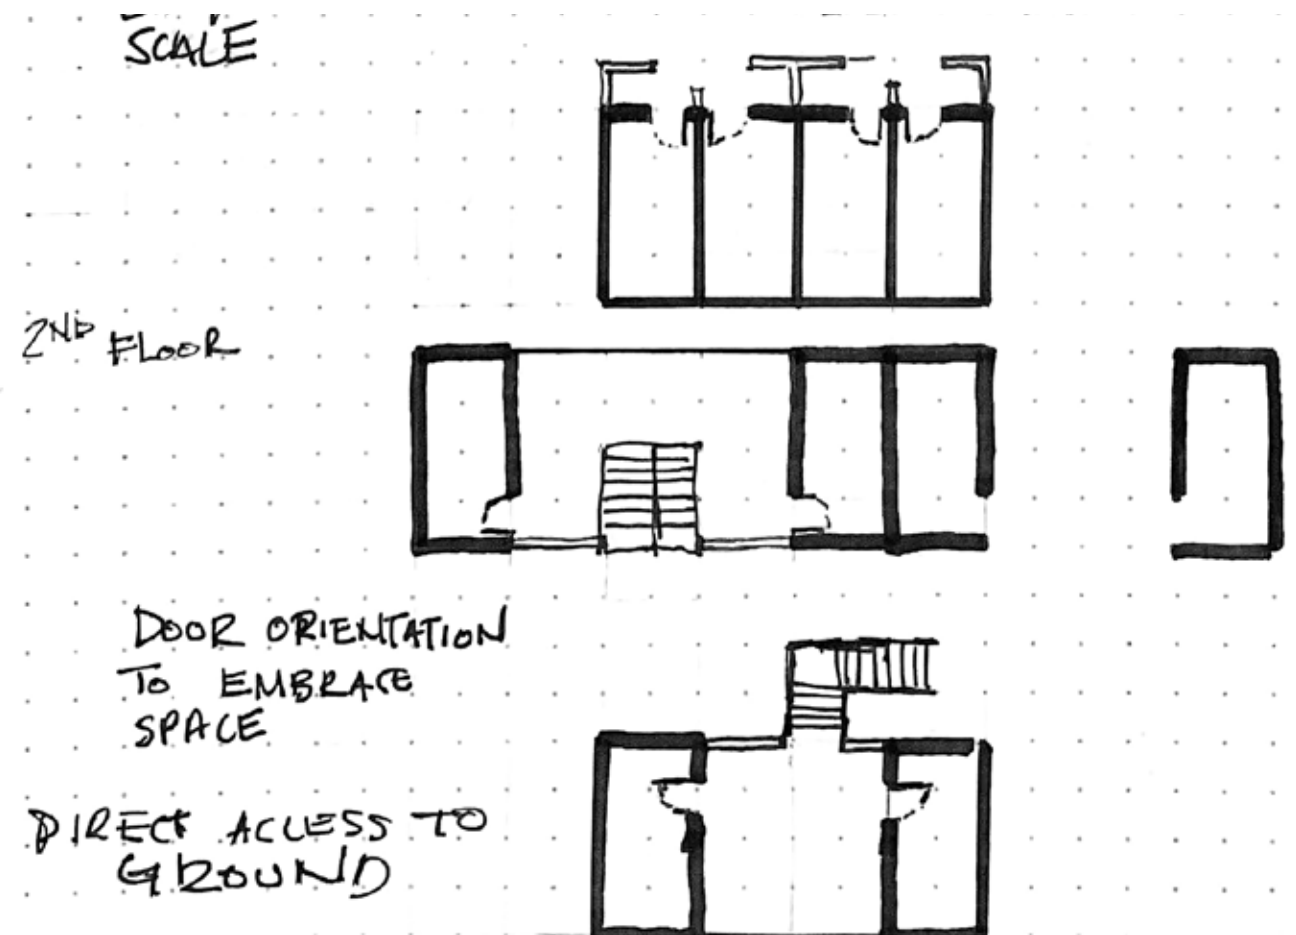 SCALE
2ND FLOOR
DOOR ORIENTATION
TO EMBRACE
SPACE
DIRECT ACCESS TO
GROUND